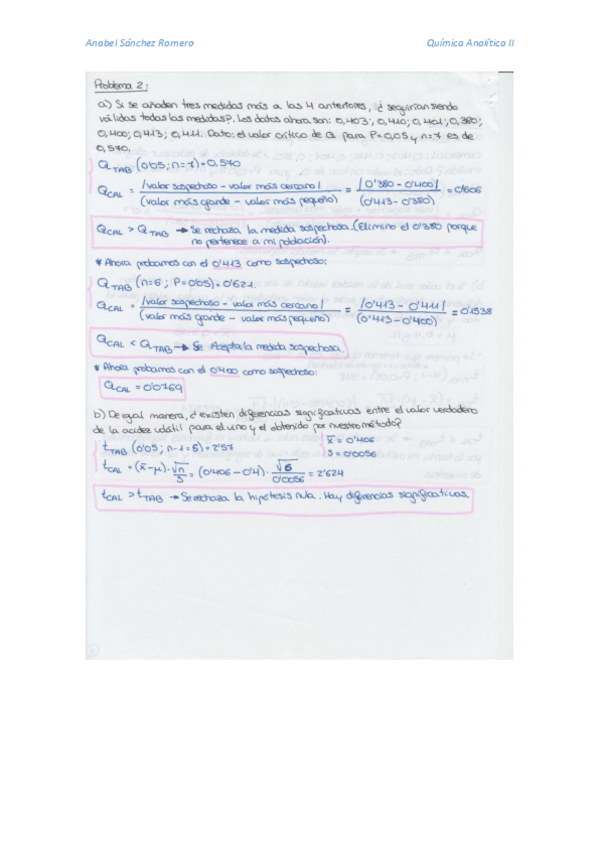 Anabel Sánchez Romero
Química Analítica II
Problema 2:
a) Si se añaden tres medidas más a las 4 anteriores, ¿seguirían siendo
válidas todas las medidas?. Los datos ahora son: 0,403; 0,410; 0,401; 0,380;
0,400; 0,413; 0,411. Dato: el valor crítico de Q para P=0,05 y n=7 es de
0,570.
QTAB (0'05; n=7) = 0,570
QCAL = |valor sospechoso - valor más cercano| / (valor más grande - valor más pequeño) = |0'380 - 0'400| / (0'413 - 0'380) = 0'606
QCAL > QTAB → Se rechaza la medida sospechosa. (Elimino el 0'380 porque
no pertenece a mi población).
* Ahora probamos con el 0'413 como sospechoso:
QTAB (n=6; P=0'05) = 0'621.
QCAL = |valor sospechoso - valor más cercano| / (valor más grande - valor más pequeño) = |0'413 - 0'411| / (0'413 - 0'400) = 0'1538
QCAL < QTAB → Se Acepta la medida sospechosa.
* Ahora probamos con el 0'400 como sospechoso:
QCAL = 0'0769
b) De igual manera, ¿existen diferencias significativas entre el valor verdadero
de la acidez volátil para el vino y el obtenido por nuestro método?
tTAB (0'05; n-1=5) = 2'57
x̄ = 0'406
s = 0'0056
tCAL = (x̄-μ) · √n / s = (0'406 - 0'4) · √6 / 0'0056 = 2'624
tCAL > tTAB → Se rechaza la hipótesis nula. Hay diferencias significativas.